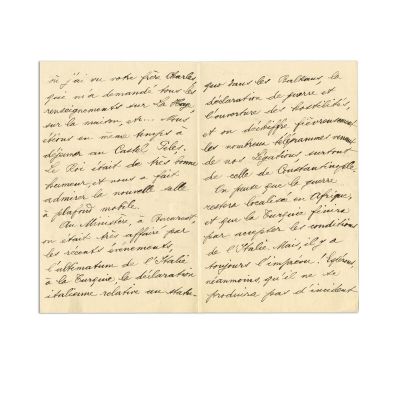 où j'ai vu votre frère Charles,
qui m'a demandé tous les
renseignements sur La Haye,
sur la maison, etc... Nous
étions en même temps à
déjeuner au Castel Pelès.
Le Roi était de très bonne
humeur, et nous a fait
admirer la nouvelle salle
à plafond mobile.
Au Ministère, à Bucarest,
on était très affairé par
les récents événements,
l'ultimatum de l'Italie
à la Turquie, la déclaration
italienne relative au statu-
quo dans les Balkans, la
déclaration de guerre et
l'ouverture des hostilités,
et on déchiffre fiévreusement
les nombreux télégrammes venant
de nos Légations, surtout
de celle de Constantinople.
On pense que la guerre
restera localisée en Afrique,
et que la Turquie finira
par accepter les conditions
de l'Italie. Mais, il y a
toujours l'imprévu! Espérons,
néanmoins, qu'il ne se
produira pas d'incident